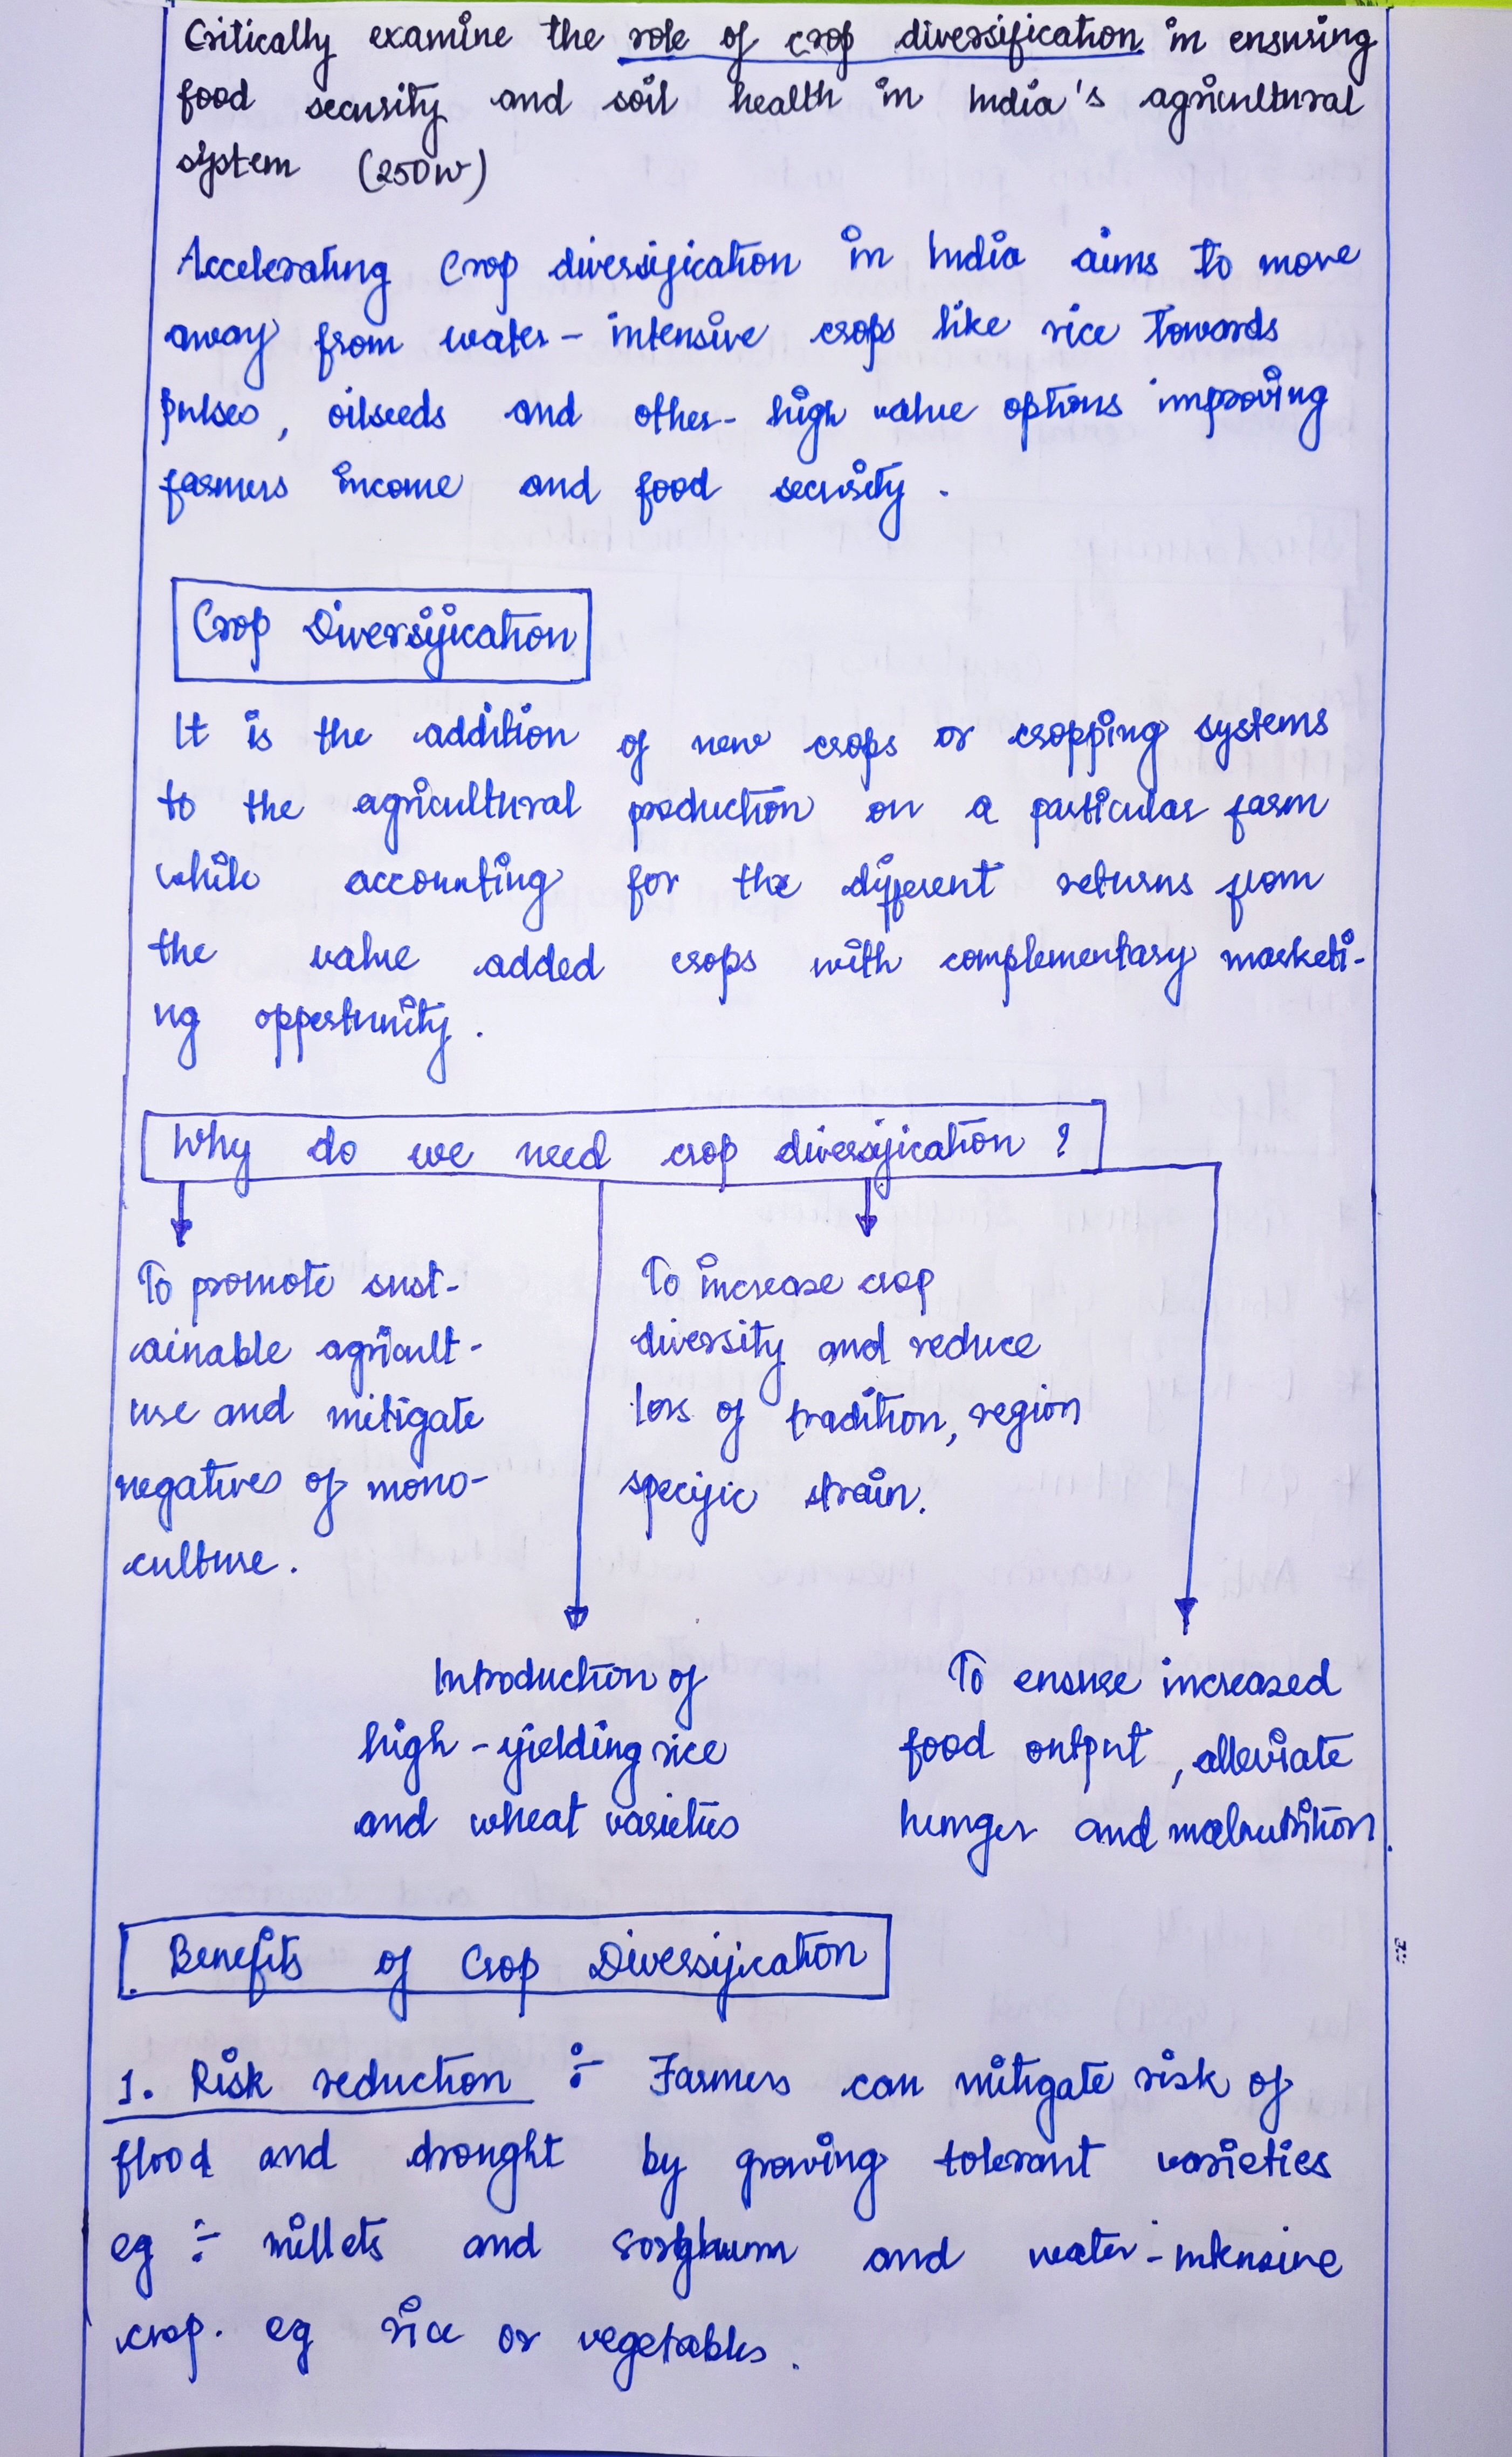 Critically examine the role of crop diversification in ensuring
food security and soil health in India's agricultural
system (250W)
Accelerating Crop diversification in India aims to move
away from water-intensive crops like rice towards
pulses, oilseeds and other-high value options improving
farmers income and food security.
Crop Diversification
It is the addition of new crops or cropping systems
to the agricultural production on a particular farm
while accounting for the different returns from
the value added crops with complementary marketi-
ng opportunity.
Why do we need crop diversification ?
To promote sust-
ainable agricult-
ure and mitigate
negatives of mono-
culture.
To increase crop
diversity and reduce
loss of tradition, region
specific strain.
Introduction of
high-yielding rice
and wheat varieties
To ensure increased
food output, alleviate
hunger and malnutrition.
Benefits of Crop Diversification
1. Risk reduction :- Farmers can mitigate risk of
flood and drought by growing tolerant varieties
eg :- millets and sorghum and water-intensive
crop. eg rice or vegetables.